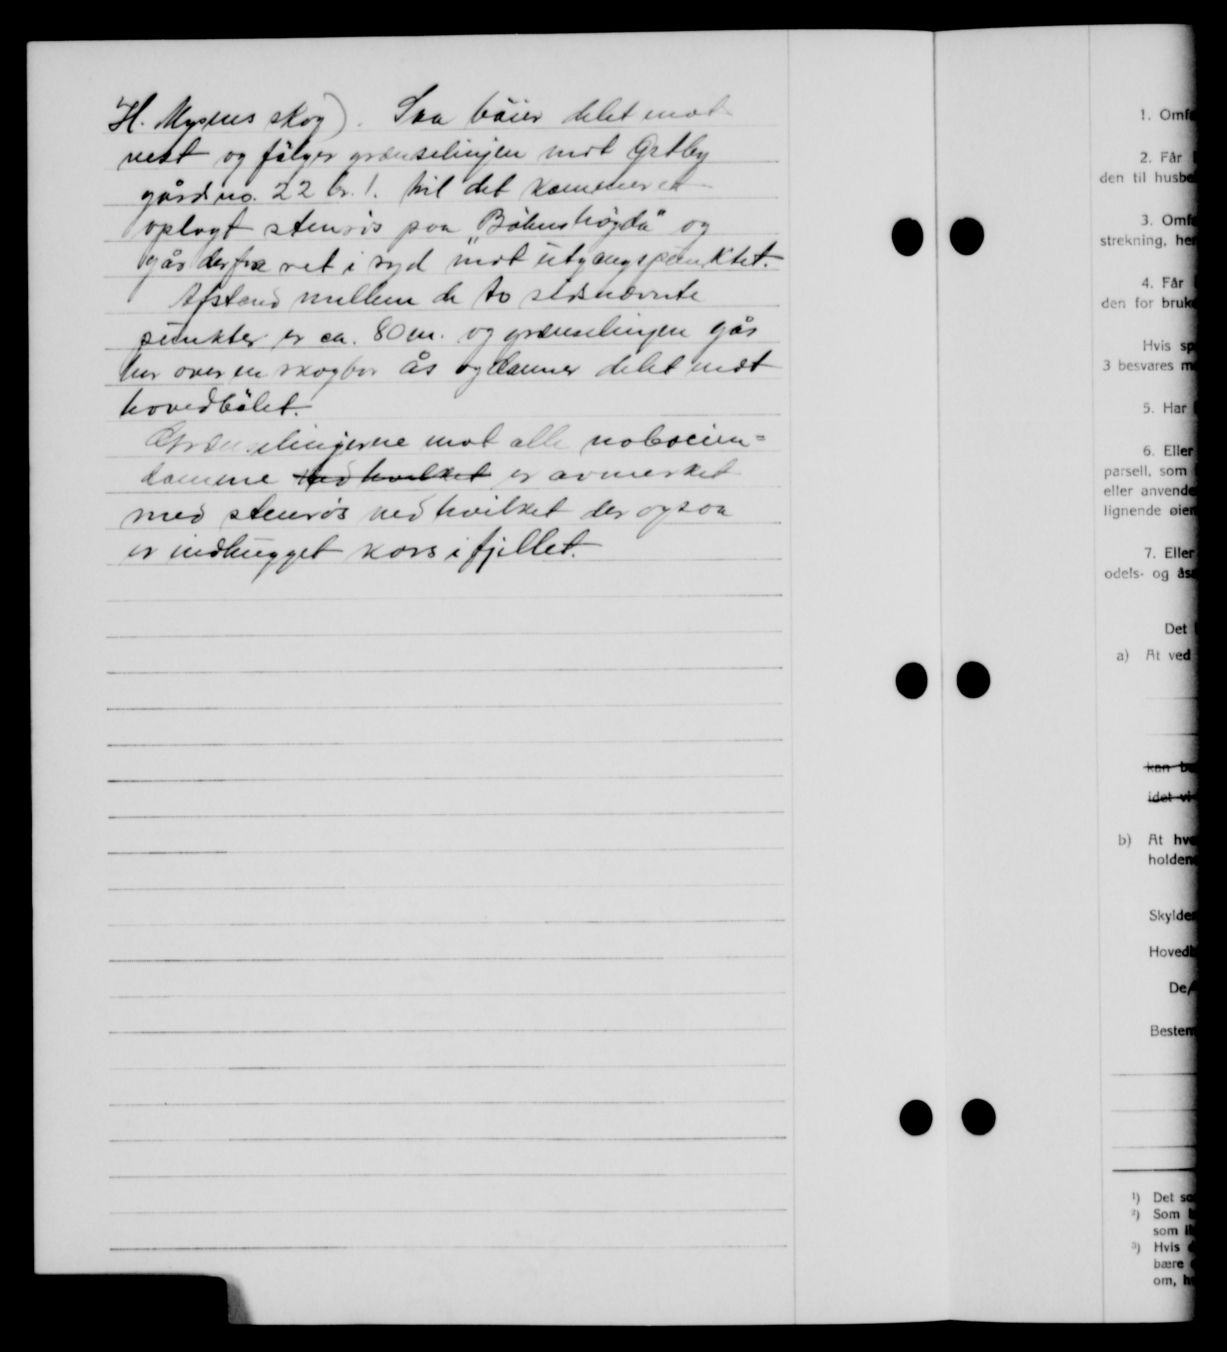 H. Mysens skog). Saa böier delet mot
vest og fölger grænselinjen mot Østby
gårds no. 22 br. 1. til det kommer et
oplagt stenrös paa "Böhnshøgda" og
går derfra ret i syd mot utgangspunktet.
Afstand mellem de to sidsnævnte
punkter er ca. 80 m. og grænselinjen går
her over en skogbar ås og danner delet mot
hovedbölet.
Grænselinjerne mot alle naboeien=
domme ved hvilket er avmerket
med stenrös ved hvilket der ogsaa
er indhugget kors i fjellet.
1. Omf
2. Får
den til husbe
3. Omf
strekning, her
4. Får
den for bruk
Hvis sp
3 besvares m
5. Har
6. Eller
parsell, som
eller anvende
lignende øien
7. Eller
odels- og ås
Det
a) At ved
kan be
idet vi
b) At hv
holden
Skylde
Hoved
De
Bestem
1) Det so
2) Som
som
3) Hvis
bære
om, h